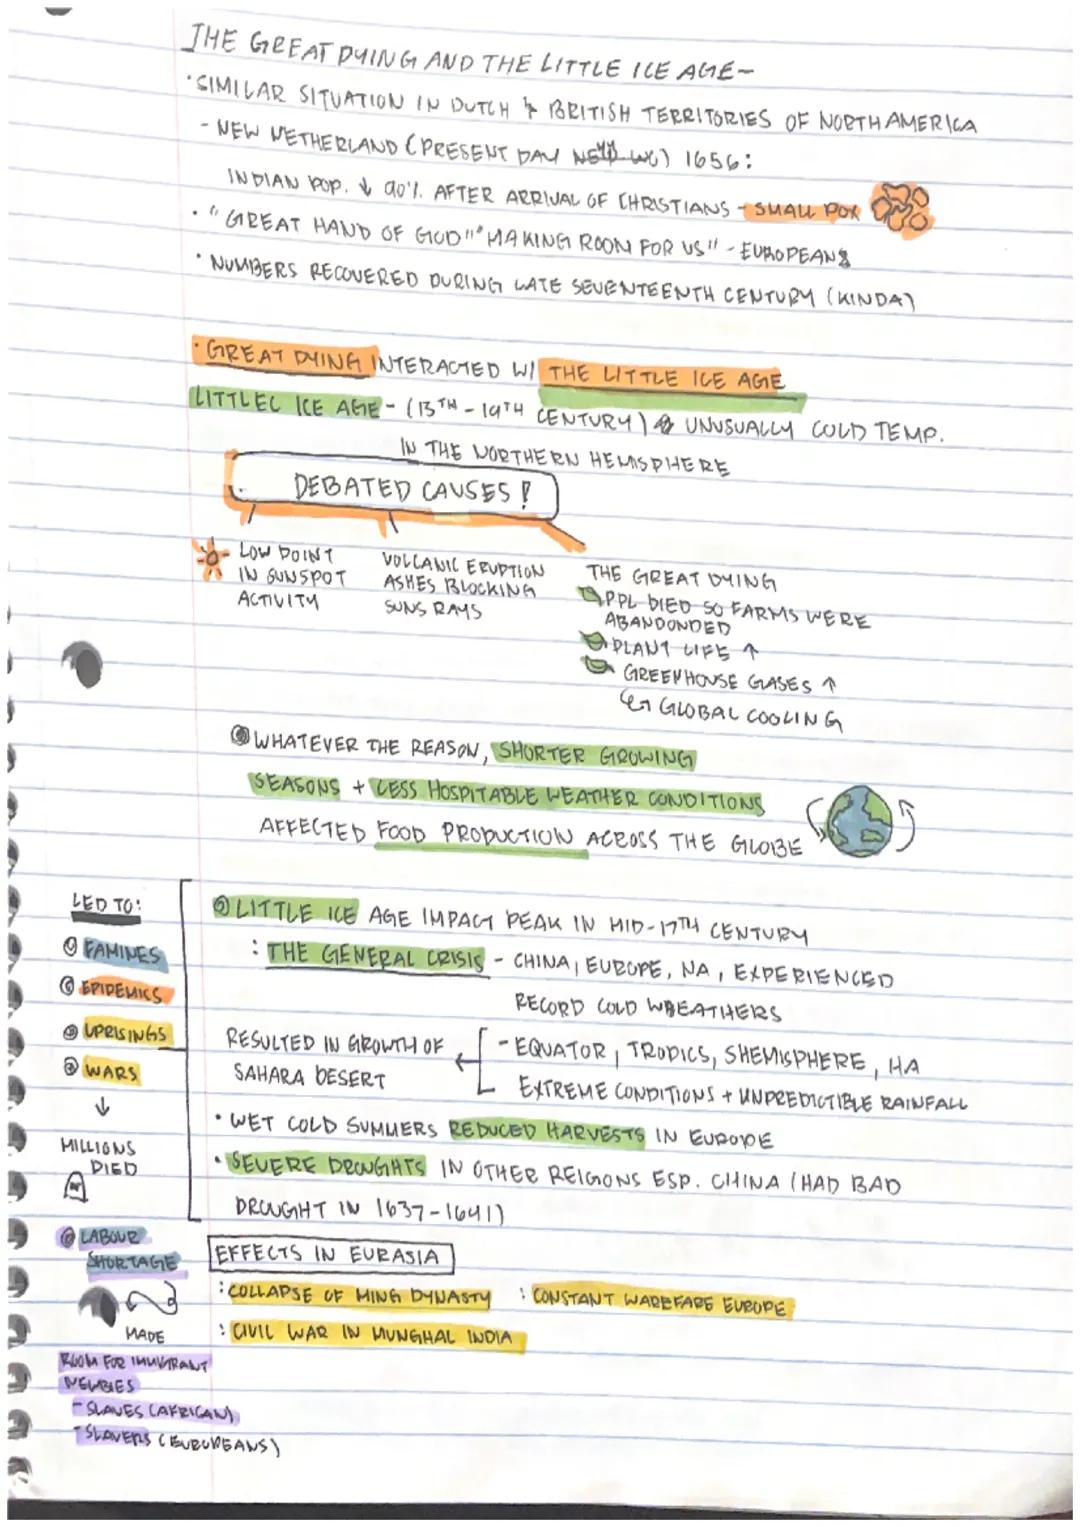 THE GREAT DYING AND THE LITTLE ICE AGE-
• SIMILAR SITUATION IN DUTCH & BRITISH TERRITORIES OF NORTH AMERICA
- NEW NETHERLAND (PRESENT DAY 1656:
INDIAN POP. ↓ 90% AFTER ARRIVAL OF CHRISTIANS - SMALL POX
• "GREAT HAND OF GOD" "MAKING ROOM FOR US" - EUROPEANS
• NUMBERS RECOVERED DURING LATE SEVENTEENTH CENTURY (KINDA)
• GREAT DYING INTERACTED W/ THE LITTLE ICE AGE
LITTLEL ICE AGE - (13TH - 19TH CENTURY) UNUSUALLY COLD TEMP.
IN THE NORTHERN HEMISPHERE
DEBATED CAUSES!
LOW POINT
IN SUNSPOT
ACTIVITY
VOLCANIC ERUPTION
ASHES BLOCKING
SUNS RAYS
THE GREAT DYING
PPL DIED SO FARMS WERE
ABANDONDED
PLANT LIFE ↑
GREENHOUSE GASES ↑
↳ GLOBAL COOLING
WHATEVER THE REASON, SHORTER GROWING
SEASONS + LESS HOSPITABLE WEATHER CONDITIONS
AFFECTED FOOD PRODUCTION ACROSS THE GLOBE
LED TO:
FAMINES
EPIDEMICS
UPRISINGS
WARS
↓
MILLIONS
DIED
LABOUR
SHORTAGE
MADE
ROOM FOR IMMIGRANT
NEWBIES
- SLAVES (AFRICAN)
- SLAVERS (EUROPEANS)
LITTLE ICE AGE IMPACT PEAK IN MID-17TH CENTURY
: THE GENERAL CRISIS - CHINA, EUROPE, NA, EXPERIENCED
RECORD COLD WEATHERS
RESULTED IN GROWTH OF
SAHARA DESERT
- EQUATOR, TROPICS, SHEMISPHERE, HA
EXTREME CONDITIONS + UNPREDICTIBLE RAINFALL
• WET COLD SUMMERS REDUCED HARVESTS IN EUROPE
• SEVERE DROUGHTS IN OTHER REIGONS ESP. CHINA (HAD BAD
DROUGHT IN 1637-1641)
EFFECTS IN EURASIA
: COLLAPSE OF MING DYNASTY : CONSTANT WAREFARE EUROPE
: CIVIL WAR IN MUNGHAL INDIA